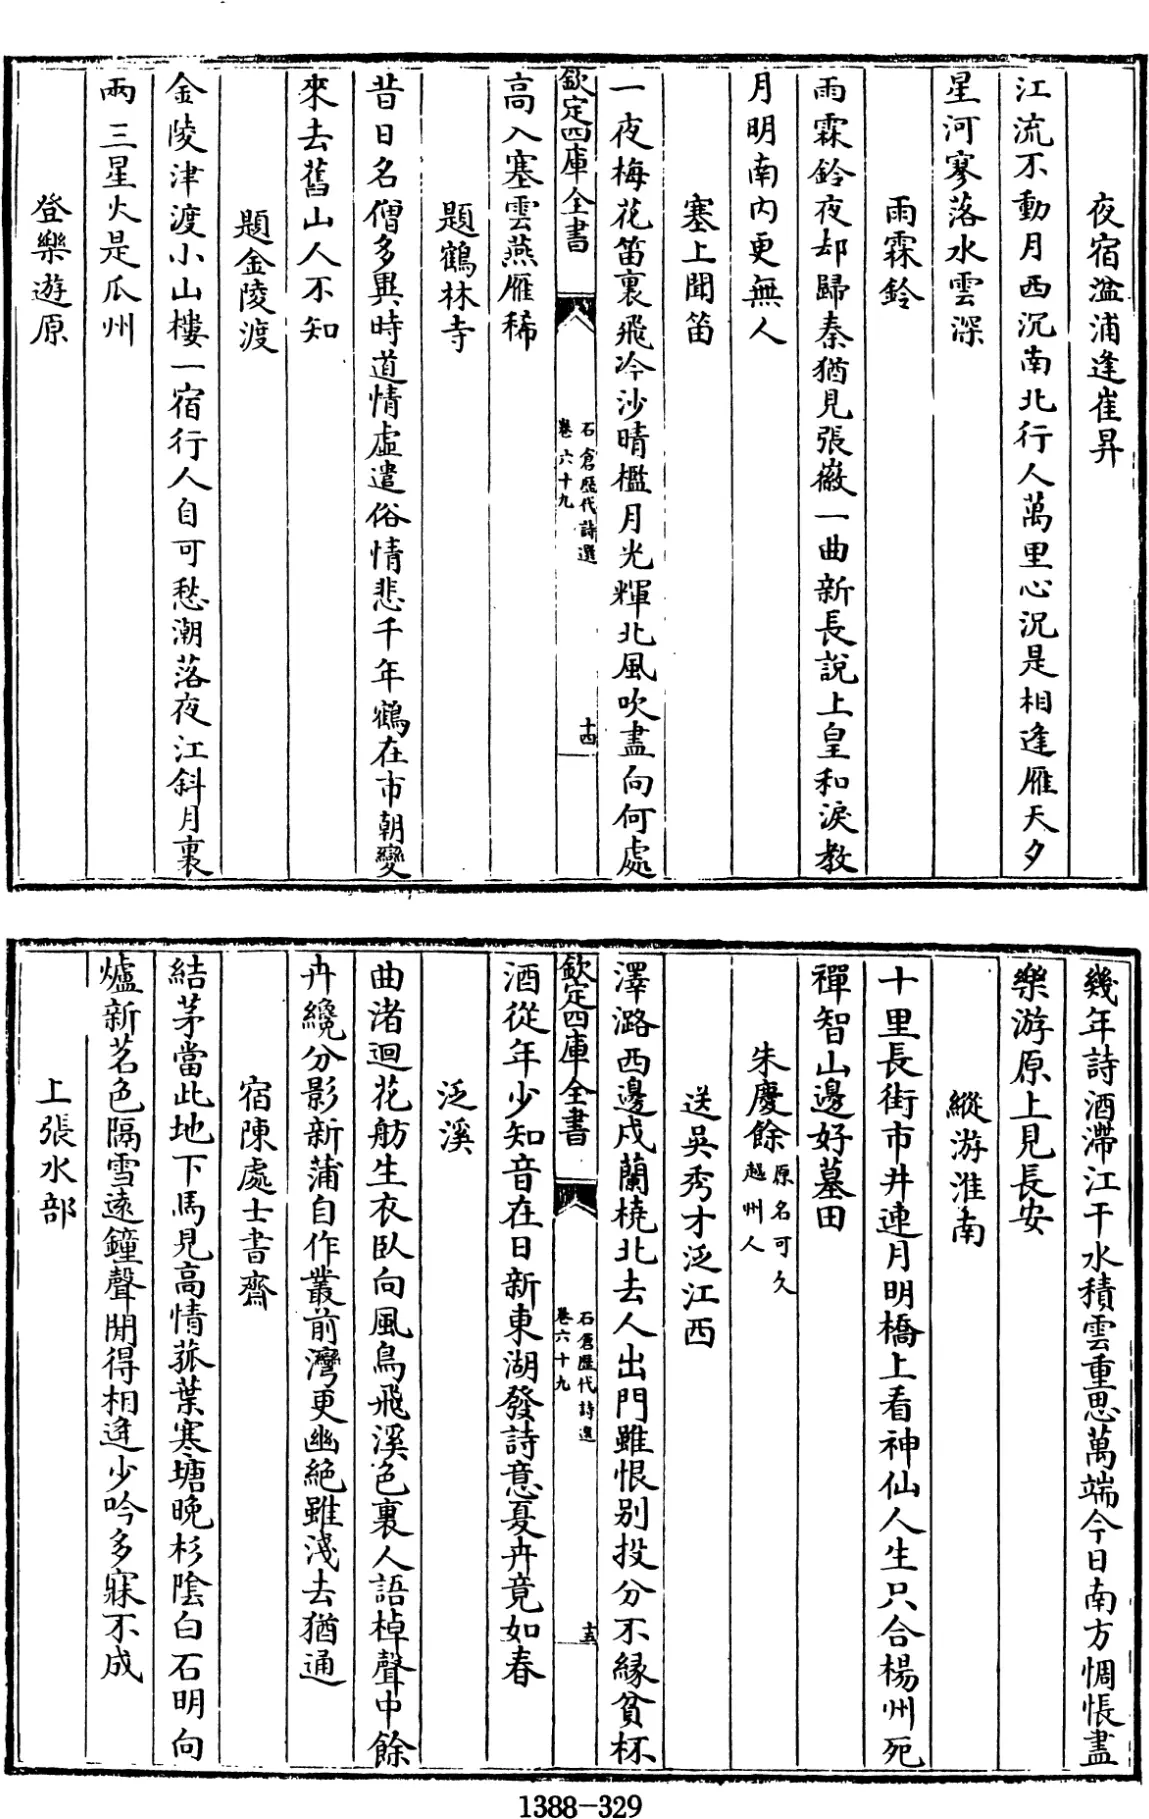 夜宿湓浦逢崔昇
江流不動月西沉南北行人萬里心況是相逢雁天夕
星河寥落水雲深
雨霖鈴
雨霖鈴夜却歸秦猶見張徽一曲新長說上皇和淚教
月明南內更無人
塞上聞笛
一夜梅花笛裏飛冷沙晴檻月光輝北風吹盡向何處
欽定四庫全書
石倉歷代詩選
卷六十九
十四
高入塞雲燕雁稀
題鶴林寺
昔日名僧多異時道情虛遣俗情悲千年鶴在市朝變
來去舊山人不知
題金陵渡
金陵津渡小山樓一宿行人自可愁潮落夜江斜月裏
兩三星火是瓜州
登樂遊原
幾年詩酒滯江干水積雲重思萬端今日南方惆悵盡
樂游原上見長安
縱游淮南
十里長街市井連月明橋上看神仙人生只合楊州死
禪智山邊好墓田
朱慶餘原名可久越州人
送吳秀才泛江西
澤潞西邊戍蘭橈北去人出門雖恨别投分不緣貧杯
欽定四庫全書
石倉歷代詩選
卷六十九
十五
酒從年少知音在日新東湖發詩意夏卉竟如春
泛溪
曲渚迴花舫生衣臥向風鳥飛溪色裏人語棹聲中餘
卉纔分影新蒲自作叢前灣更幽絕雖淺去猶通
宿陳處士書齋
結茅當此地下馬見高情菰葉寒塘晚杉陰白石明向
爐新茗色隔雪遠鐘聲閒得相逢少吟多寐不成
上張水部
1388-329